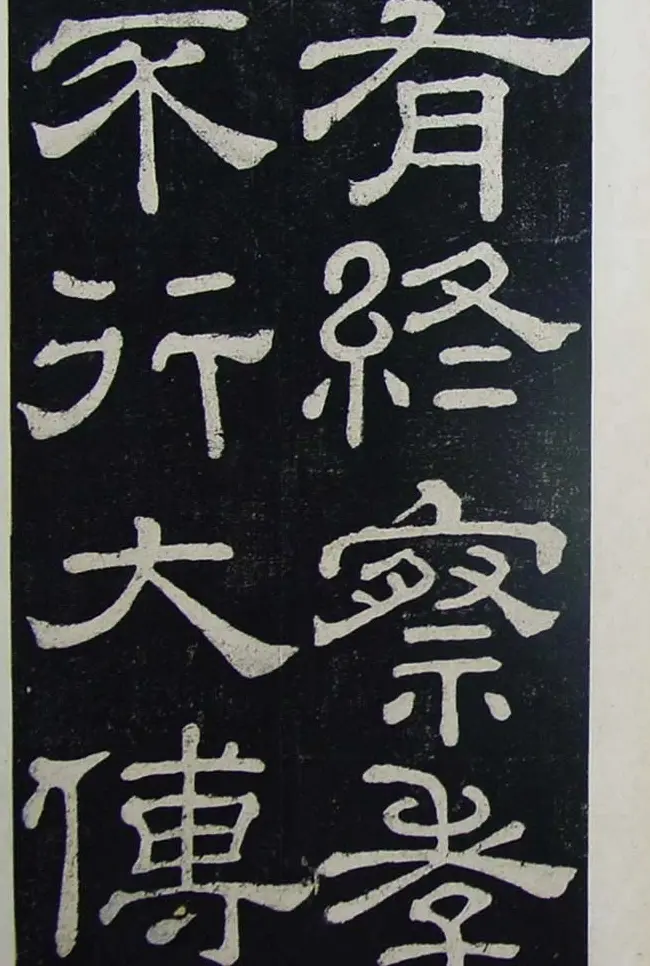 有終察孝
不行大傅